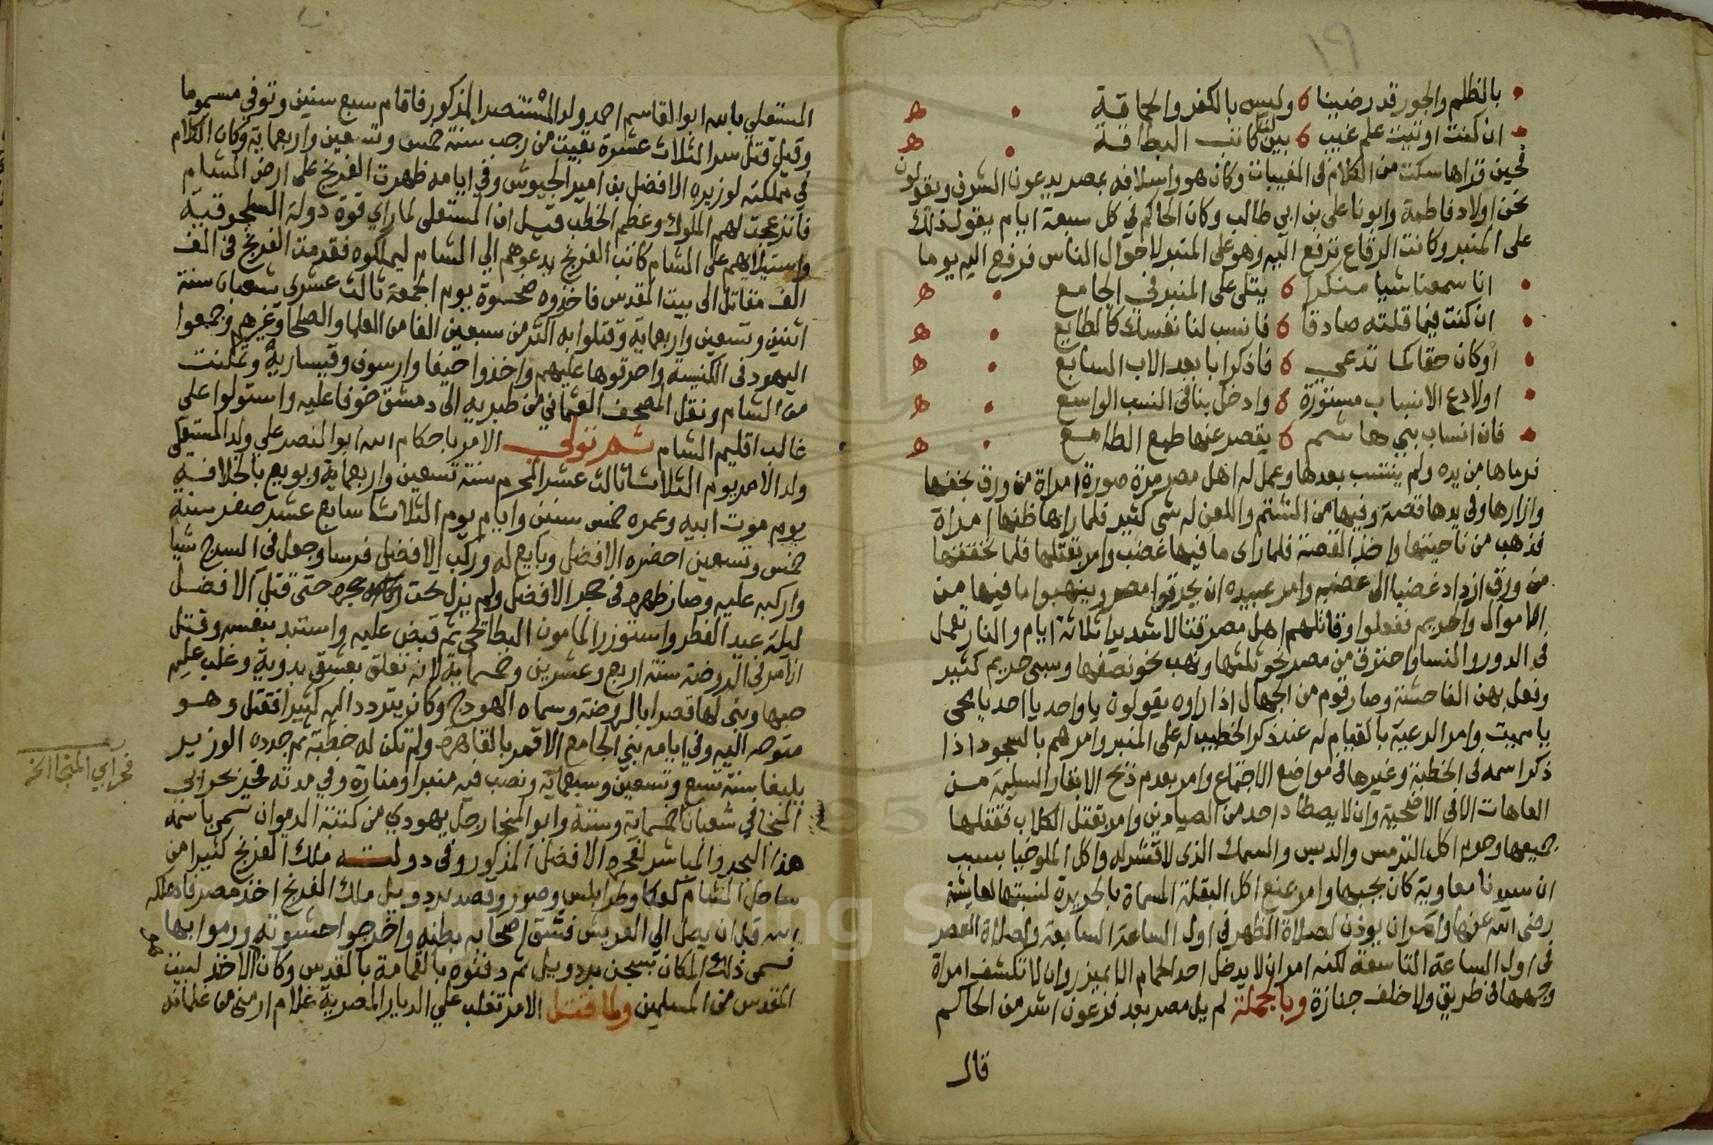 بالظلم والجور قد رضينا وليس بالكفر والحماقة
ان كنت اوتيت علم غيب بين لنا كاتب البطاقة
فحين قراها سكت من الكلام في المغيبات وكان هو واسلافه بمصر يدعون الشرف ويقولون
نحن اولاد فاطمة وابونا علي بن ابي طالب وكان الحاكم في كل سبعة ايام يقول ذلك
على المنبر وكانت الرقاع ترفع اليه وهو على المنبر لاحوال الناس فرفع اليه يوما
انا سمعنا شيا منكرا يتلى على المنبر في الجامع
ان كنت فيما قلته صادقا فانسب لنا نفسك كالطايع
او كان حقا كلما تدعي فاذكر ابا بعد الاب السابع
اولا دع الانساب مستورة وادخل بنا في النسب الواسع
فان انساب بني هاشم يقصر عنها طمع الطامع
فرماها من يده ولم ينتسب بعدها وعمل له اهل مصر مرة صورة امراة من ورق بخفها
وازارها وفي يدها قصة وفيها من الشتم واللعن له شي كثير فلما راها ظنها امراة
فذهب من ناحيتها واخذ القصة فلما راى ما فيها غضب وامر بقتلها فلما تحققها
من ورق ازداد غضبا الى غضبه وامر عبيده ان يحرقوا مصر وينهبوا ما فيها من
الاموال والحريم ففعلوا وقاتلهم اهل مصر قتالا شديدا ثلاثة ايام والنار تعمل
في الدور والنسا واحترق من مصر نحو ثلثها ونهب نحو نصفها وسبى حريم كثير
وفعل بهن الفاحشة وصار قوم من الجهال اذا راوه يقولون يا واحد يا احد يا محيي
يا مميت وامر الرعية بالقيام له عند ذكر الخطيب له على المنبر وامرهم بالسجود اذا
ذكر اسمه في الخطبة وغيرها في مواضع الاجتماع وامر بعدم ذبح الابقار السليمة من
العاهات الا في الاضحية وان لا يصطاد احد من الصيادين وامر بقتل الكلاب فقتلها
جميعها وحرم اكل الترمس والدبس والسمك الذي لا قشر له واكل الملوخيا بسبب
ان سيدنا معاوية كان يحبها وامر بمنع اكل البقلة المسماة بالجريرة لنسبتها لعايشة
رضي الله عنها وامر ان يوذن لصلاة الظهر في اول الساعة السابعة ولصلاة العصر
في اول الساعة التاسعة لكنه امر ان لا يدخل احد الحمام الا بميزر وان لا تكشف امراة
وجهها في طريق ولا خلف جنازة وبالجملة لم يل مصر بعد فرعون اشر من الحاكم
قال
المستعلي بالله ابو القاسم احمد ولد المستنصر المذكور فاقام سبع سنين وتوفي مسموما
وقيل قتل سرا لثلاث عشرة بقيت من رجب سنة خمس وتسعين واربعماية وكان الكلام
في مملكته لوزيره الافضل بن امير الجيوش وفي ايامه ظهرت الفرنج على ارض الشام
فانزعجت لهم الملوك وعظم الخطب قيل ان المستعلي لما راي قوة دولة السلجوقية
واستيلايهم على الشام كاتب الفرنج يدعوهم الي الشام ليملكوه فقدمت الفرنج في الف
الف مقاتل الى بيت المقدس فاخذوه ضحوة يوم الجمعة ثالث عشري شعبان سنة
اثنين وتسعين واربعماية وقتلوا به اكثر من سبعين الفا من العلما والصلحا وغيرهم وجمعوا
اليهود في الكنيسة واحرقوها عليهم واخذوا حيفا وارسوف وقيسارية
من الشام ونقل المصحف العثماني من طبريه الى دمشق خوفا عليه واستولوا على
غالب اقليم الشام ثم تولي الامر باحكام الله ابو المنصر علي ولد المستعلي
ولد الامر يوم الثلاثا ثالث عشر المحرم سنة تسعين واربعماية وبويع بالخلافة
يوم موت ابيه وعمره خمس سنين وايام يوم الثلاثا سابع عشر صفر سنة
خمس وتسعين احضره الافضل وبايع له وركب الافضل فرسا وجعل في السرج شيا
واركبه عليه وصار ظهره في حجر الافضل ولم يزل تحت حجره حتى قتل الافضل
ليلة عيد الفطر واستوزر المامون البطائحي ثم قبض عليه واستبد بنفسه وقتل
الامر في الروضة سنة اربع وعشرين وخمسماية لانه تعلق بعشق بدوية وغلب عليه
حبها وبنى لها قصرا بالروضة وسماه الهودج وكان يتردد اليه كثيرا فقتل وهو
متوجه اليه وفي ايامه بني الجامع الاقمر بالقاهرة ولم تكن له خطبة ثم جدده الوزير
يلبغا سنة تسع وتسعين وسبعماية ونصب فيه منبرا ومنارة وفي مدته فجر بحر ابي
المنجا في شعبان خمسماية وستة وابو المنجا رجل يهودي من كتبة الديوان سمي باسمه
هذا البحر والمباشر لفجره الافضل المذكور وفي دولته ملك الفرنج كثيرا من
ساحل الشام كعكا وطرابلس وصور وقصد بردويل ملك الفرنج اخذ مصر فاهلكه
الله قبل ان يصل الي العريش فشق اصحابه بطنه واخرجوا حشوته ورموا بها
فسمي ذلك المكان بسبخة بردويل ثم دفنوه بالقمامة بالقدس وكان الاخذ لبيت
المقدس من المسلمين ولما قتل الامر تغلب علي الديار المصرية غلام ارمني من غلمانه
فجر ابي المنجا